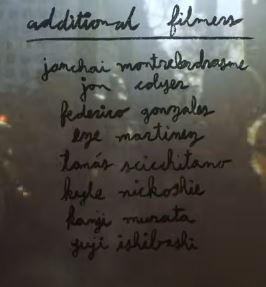 additional filmers
janchai montrelerdrasme
jon colyer
federico gonzales
eze martinez
tomas scicchitano
kyle nickoshie
kanji murata
yuji ishibashi